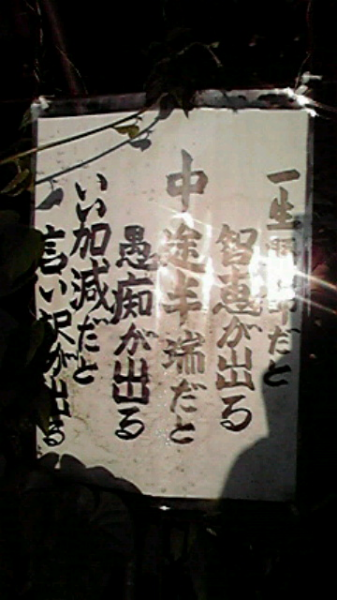 一生懸命だと
智恵が出る
中途半端だと
愚痴が出る
いい加減だと
言い訳が出る